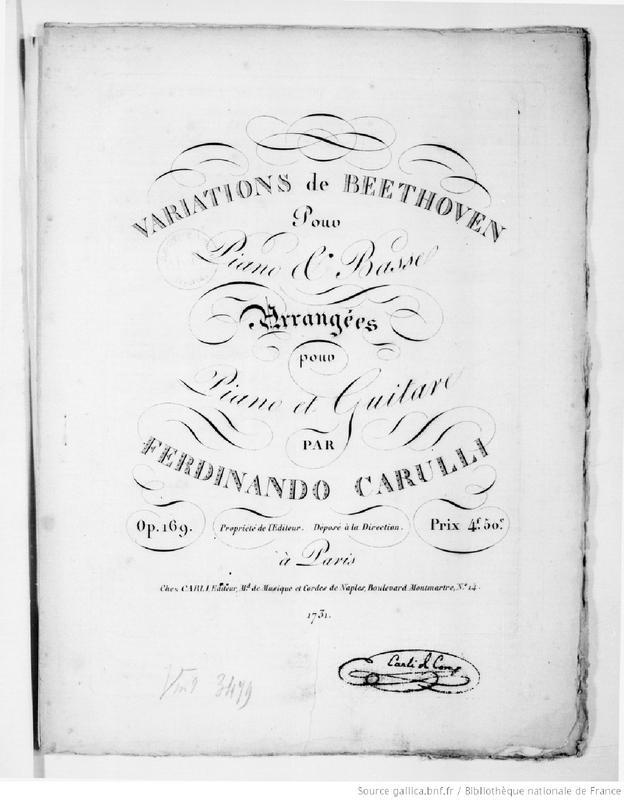 VARIATIONS de BEETHOVEN
Pour
Piano & Basse
Arrangées
pour
Piano et Guitare
PAR
FERDINANDO CARULLI
Op. 169. Propriété de l'Editeur. Déposé à la Direction. Prix 4f. 50c.
à Paris
Chez CARLI Editeur, Md. de Musique et Cordes de Naples, Boulevard Montmartre, No. 14.
1731.
Carli & Comp
Vm9 3479
Source gallica.bnf.fr / Bibliothèque nationale de France